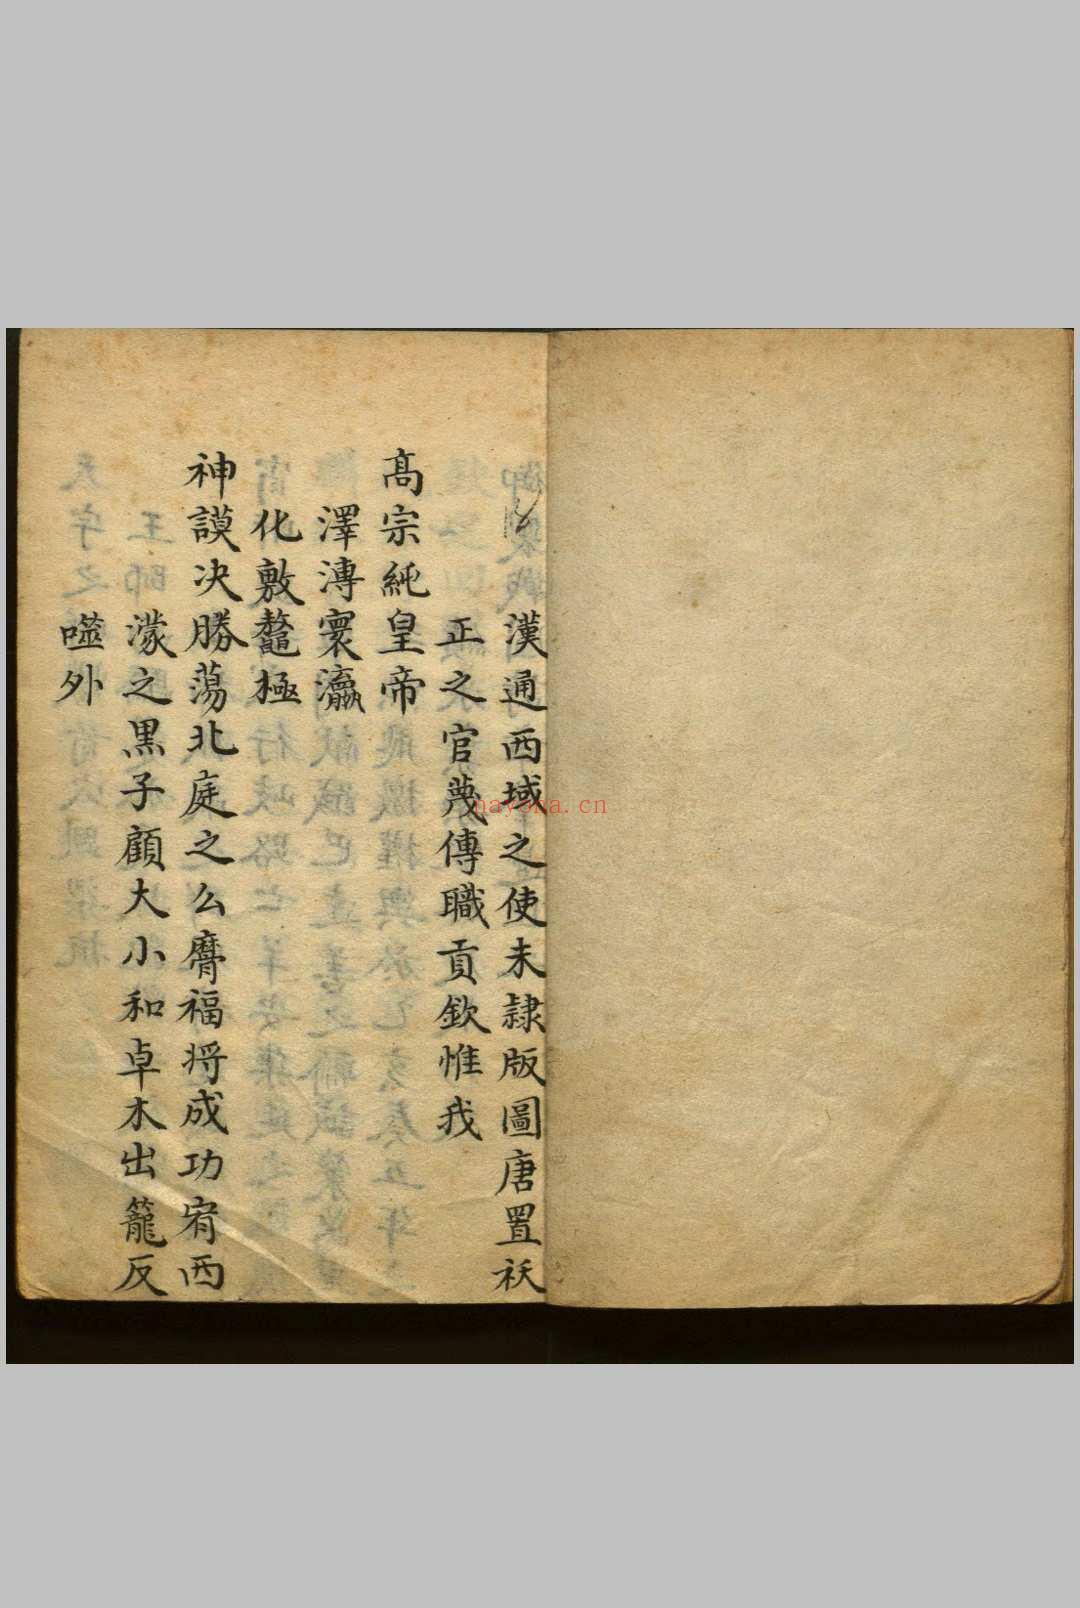 漢通西域之使未隷版圖唐置祆
正之官蔑傳職貢欽惟我
髙宗純皇帝
澤漙寰瀛
化敷鼇極
神謨決勝蕩北庭之么麿福将成功宥西
濛之黒子顧大小和卓木出籠反
噬外
nayona.cn